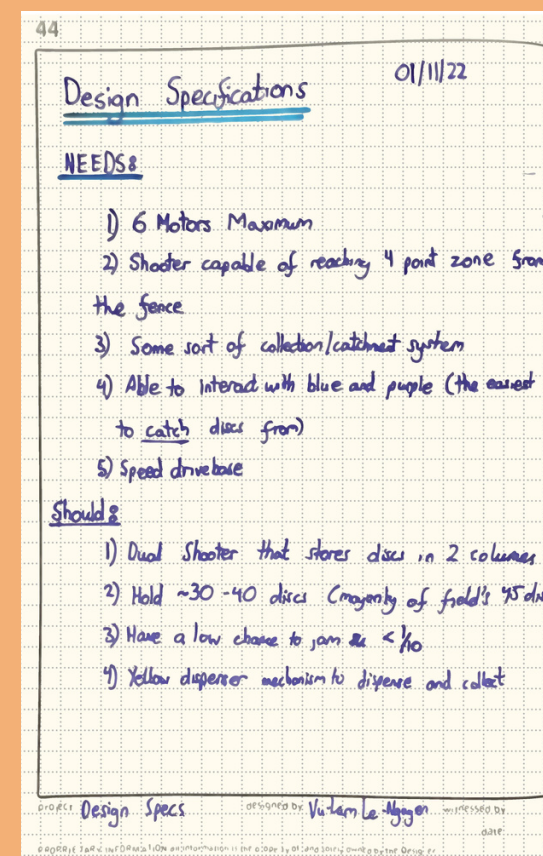 44
Design Specifications
01/11/22
NEEDS:
1) 6 Motors Maximum
2) Shooter capable of reaching 4 point zone from
the fence
3) Some sort of collection/catchment system
4) Able to interact with blue and purple (the easiest
to catch discs from)
5) Speed drivebase
Should:
1) Dual Shooter that stores discs in 2 columes
2) Hold ~30-40 discs (majority of field's 45 dis
3) Have a low chance to jam <1/10
4) Yellow dispenser mechanism to dispense and collect
project Design Specs designed by Vu-Lam Le-Nguyen witnessed by
date
PROPRIETARY INFORMATION